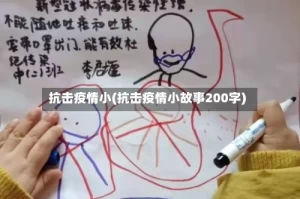 新型冠状病毒传染性强
不能随地吐痰和吐口沫
要带口罩出门,能有效杜
绝传染
中(二)3班
抗击疫情小(抗击疫情小故事200字)